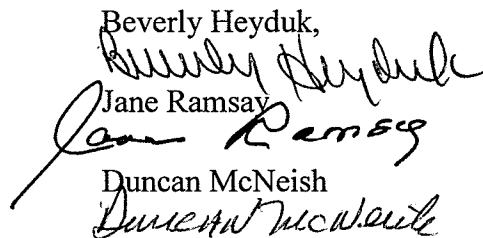 Beverly Heyduk,
Beverly Heyduk
Jane Ramsay
Jane Ramsay
Duncan McNeish
Duncan McNeish